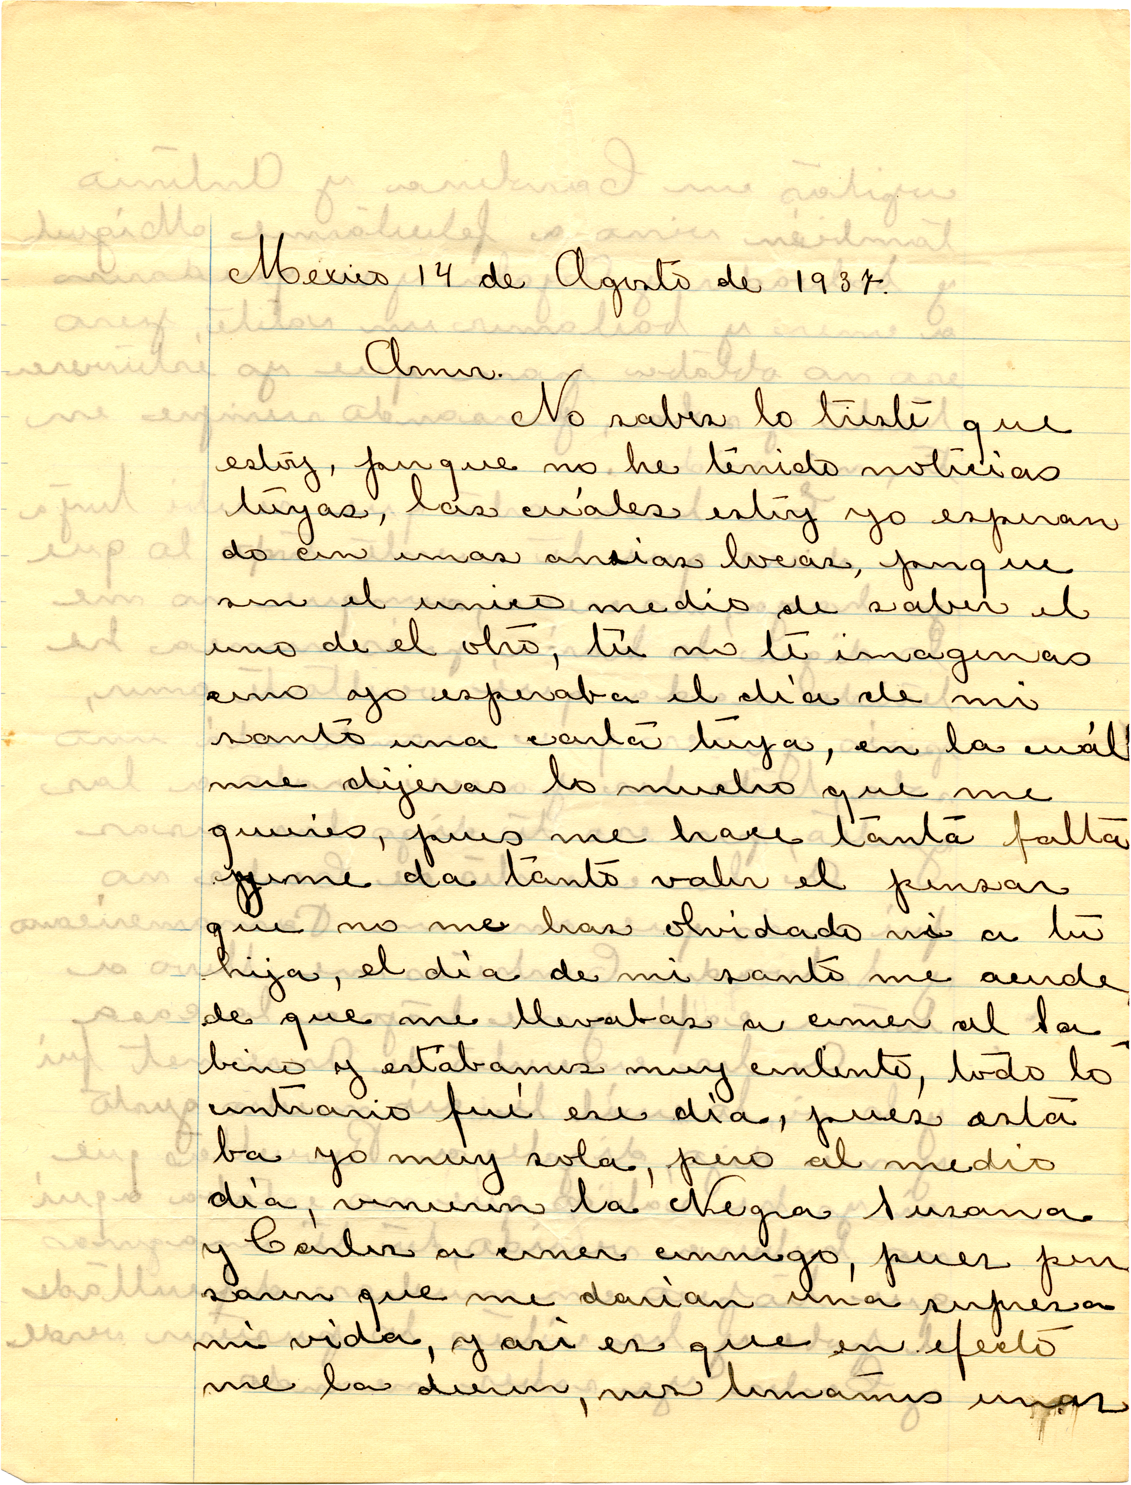 Mexico 14 de Agosto de 1937.
Amor.
No sabes lo triste que
estoy, porque no he tenido noticias
tuyas, las cuáles estoy yo esperan
do con unas ansias locas, porque
son el unico medio de saber el
uno de el otro, tú no te imaginas
como yo esperaba el día de mi
santo una carta tuya, en la cuál
me dijeras lo mucho que me
quieres, pues me hace tanta falta
y me da tanto valor el pensar
que no me has olvidado ni a tu
hija, el día de mi santo me acorde
de que me llevabas a comer al Sa
bino y estábamos muy contento, todo lo
contrario fué ese día, pues esta
ba yo muy sola, pero al medio
día, vinieron la Negra Susana
y Carlos a comer conmigo, pues pen
saron que me darian una supresa
mi vida, y asi es que en efecto
me la dieron, nos tomamos unas